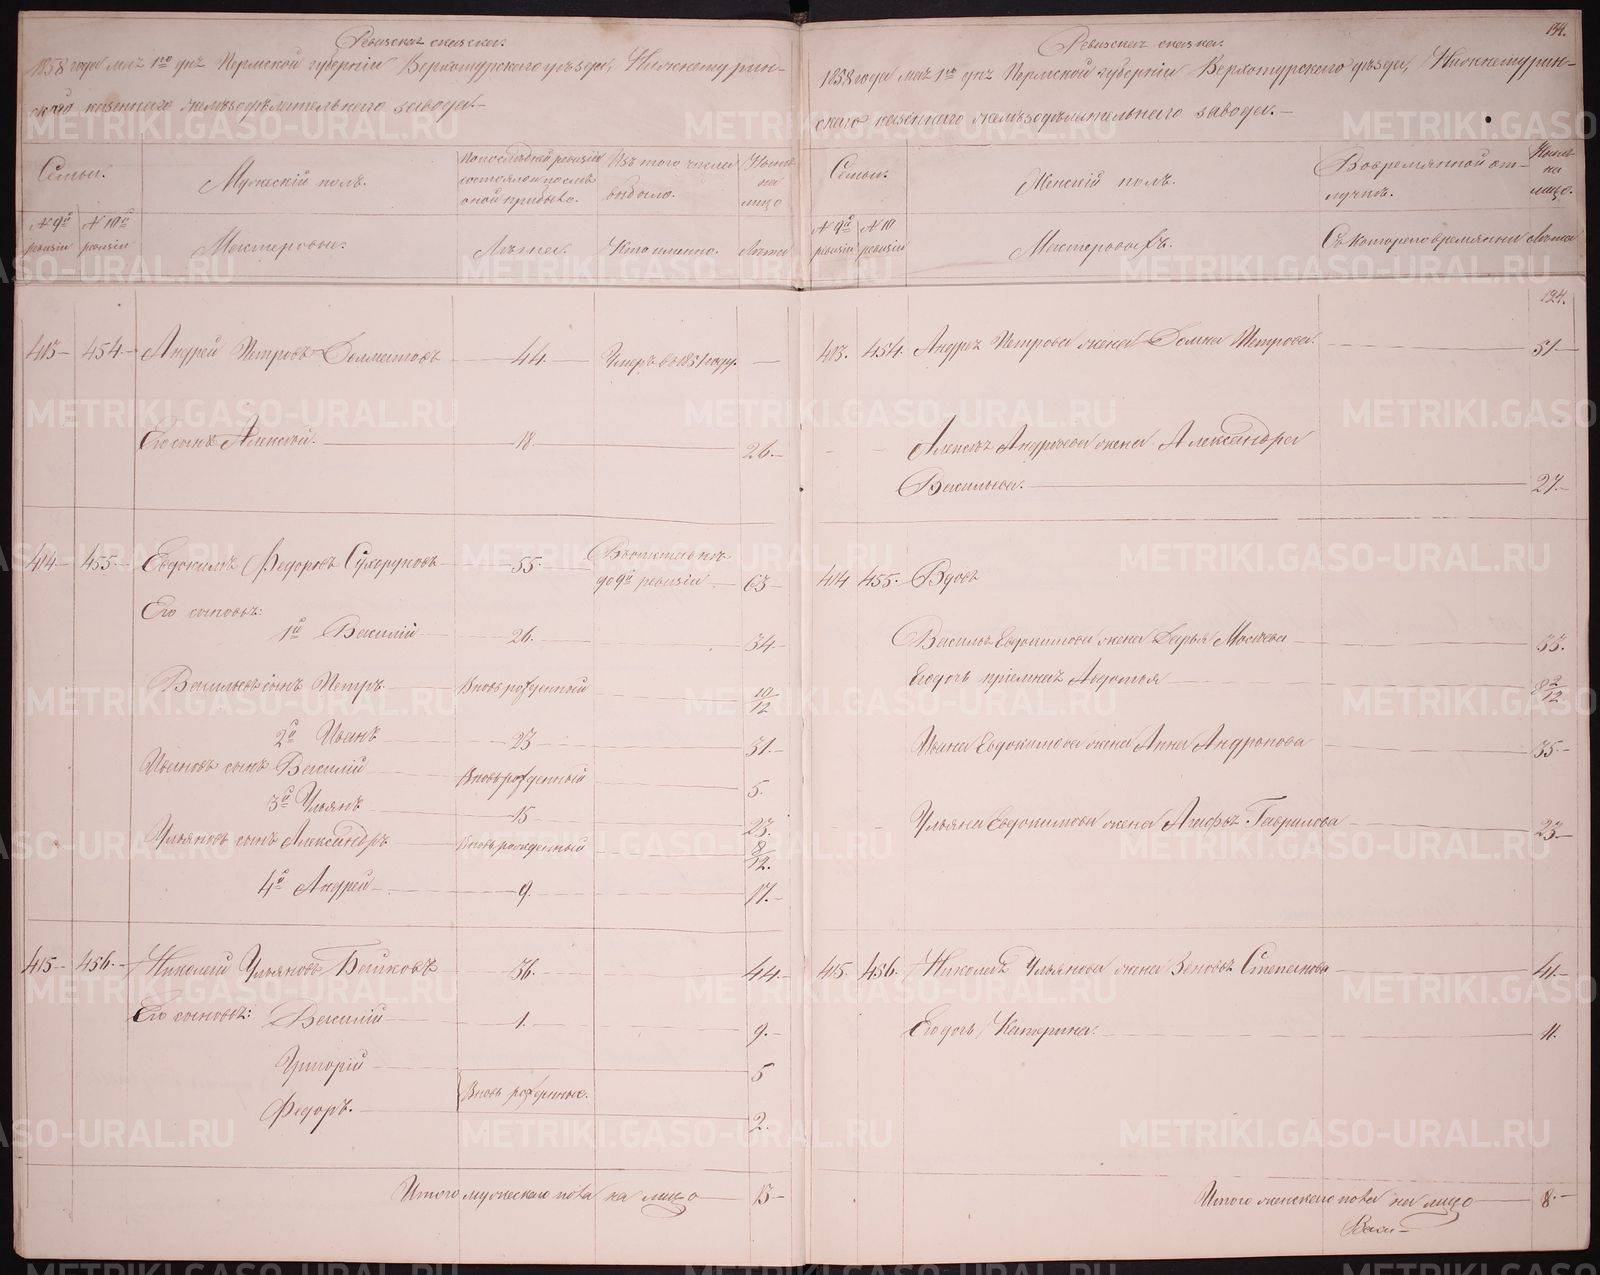 Ревизская сказка.
1858 года мая 1го дня Пермской губернiи Верхотурского уѣзда, Нижнетурин-
ского казеннаго желѣзодѣлательнаго завода.
Семьи.
Мужескiй полъ.
По последней ревизiи
состояло и послѣ
оной прибыло.
Изъ того числа
выбыло.
Нынѣ
на
лицо
№ 9й
ревизiи
№ 10й
ревизiи
Мастеровые.
Лѣта.
Кто именно.
Лѣта
413 454 Андрей Петровъ Долматовъ 44 Умеръ въ 1851 году.
Его сынъ Алексѣй. 18 26.
414 455 Евдокимъ Федоровъ Сухоруковъ 55. 63
до 9й ревизiи
Его сыновья:
1й Василiй 26. 34.
Васильевъ сынъ Петръ. Вновь рожденный 10/12
2й Иванъ 23 31.
Ивановъ сынъ Василiй Вновь рожденный 5.
3й Ульянъ 15 23.
Ульяновъ сынъ Александръ Вновь рожденный 8/12.
4й Андрей 9. 17.
415 456. Николай Ульяновъ Башковъ 36. 44.
Его сыновья: Василiй 1. 9.
Григорiй 5
Вновь рожденные.
Федоръ. 2.
Итого мужескаго пола на лицо 13
Ревизская сказка.
194.
1858 года мая 1го дня Пермской губернiи Верхотурского уѣзда, Нижнетурин-
ского казеннаго желѣзодѣлательнаго завода.
Семьи.
Женскiй полъ.
Во временной от-
лучкѣ.
Нынѣ
на
лицо.
№ 9й
ревизiи
№ 10
ревизiи
Мастеровыхъ.
Съ котораго времяни
Лѣта
194.
413. 454. Андрея Петрова жена Домна Петрова. 51
Алексѣя Андреева жена Александра
Васильева. 27.
414 455. Вдовъ
Василья Евдокимова жена Дарья Мосеева 33.
Его дочь прiемная Авдотья 8 2/12
Ивана Евдокимова жена Анна Андронова 35
Ульяна Евдокимова жена Агафья Гаврилова 23
415. 456. Николая Ульянова жена Зеновья Степанова 41.
Его дочь Катерина. 11.
Итого женскаго пола на лицо 8.